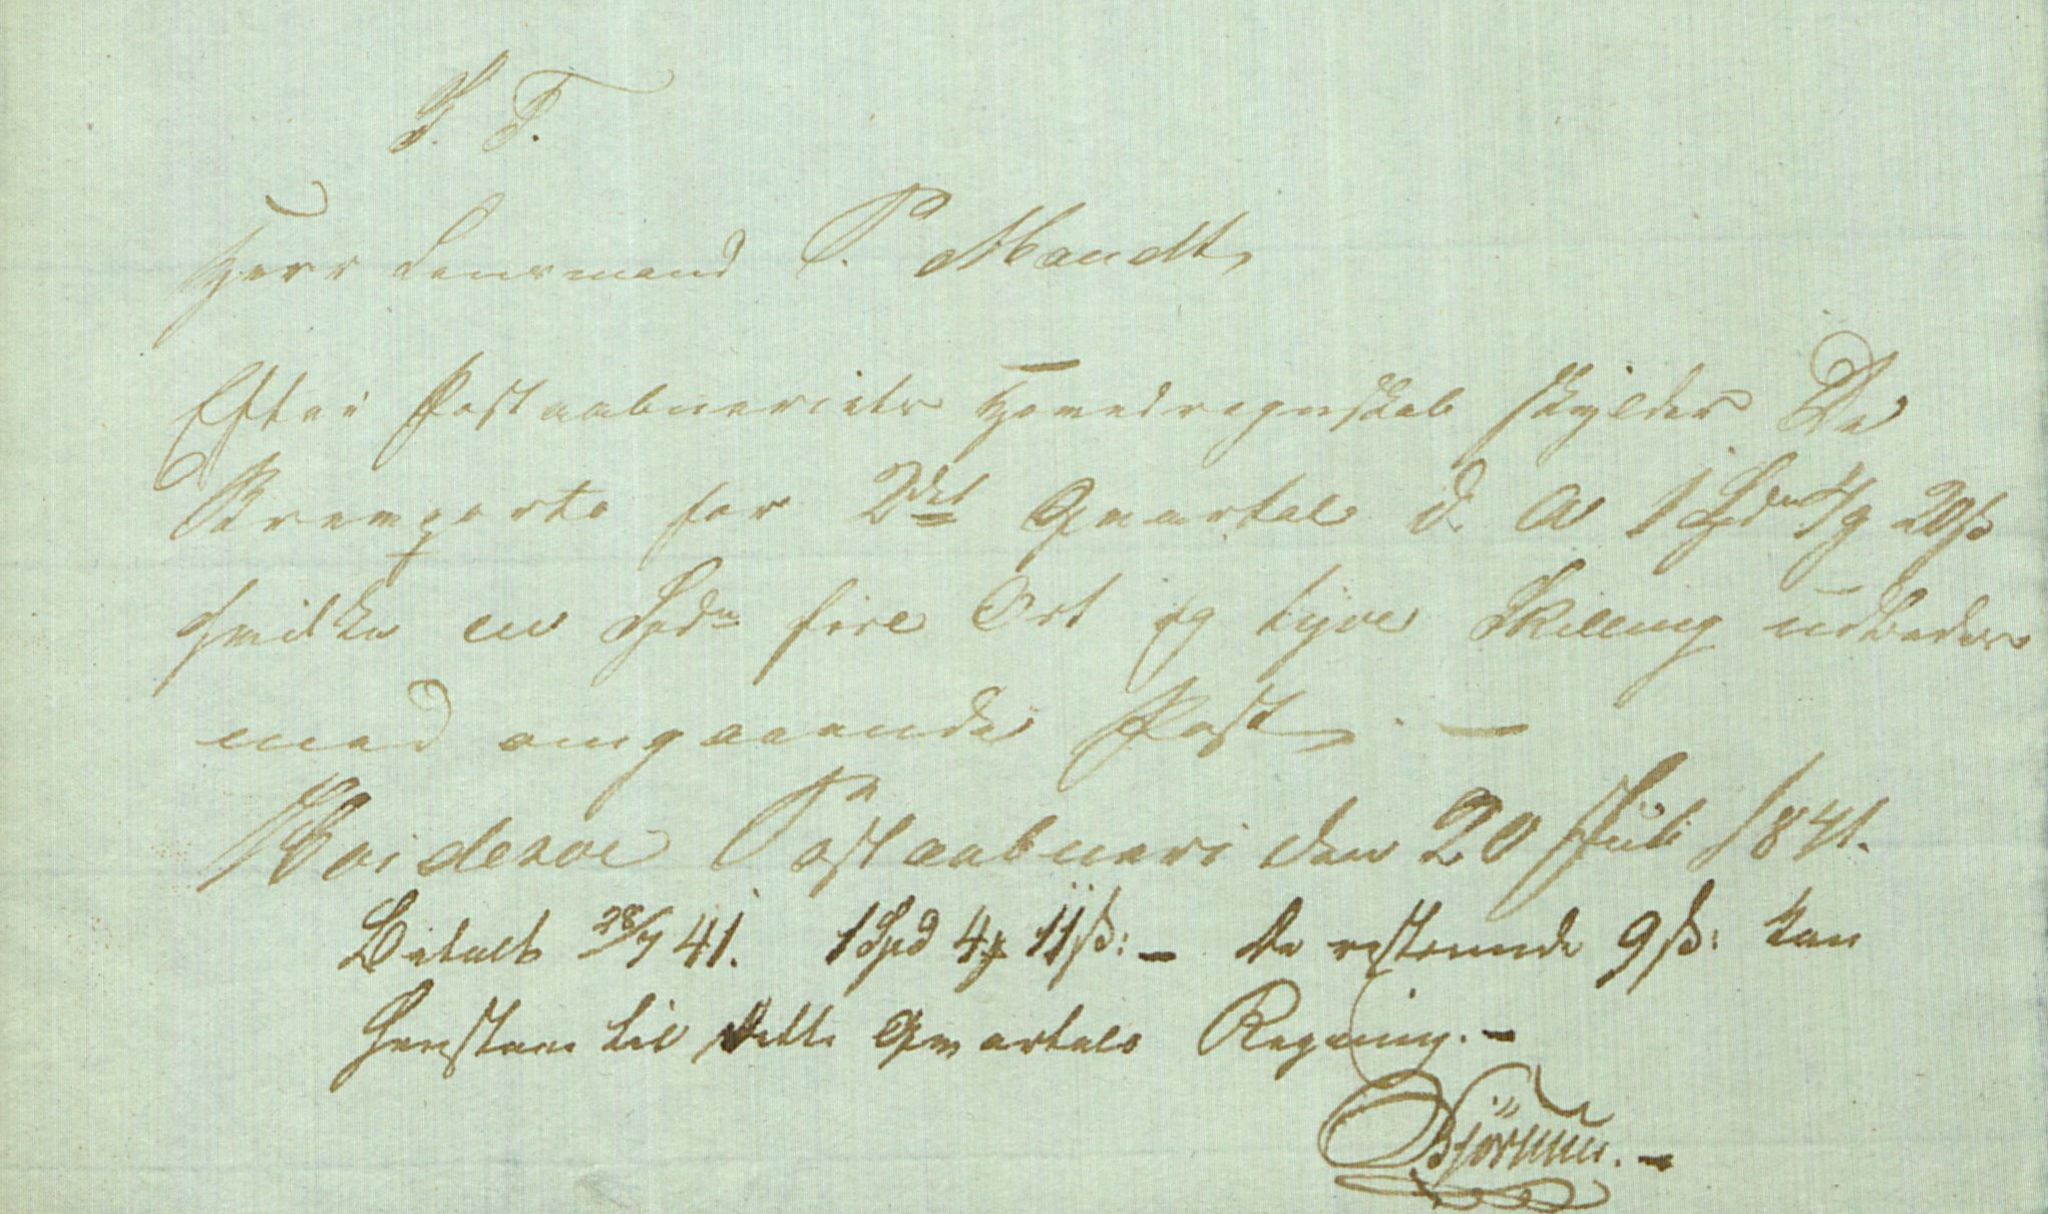 S. T.
Herr Lensmand P. Mandt,
Efter Postaabneriets Hovedregnskab skylder De
Brevporto for 2det Qvartal d. A 1 Spd 4 og 20 ß
hvilke en Spd fire Ort og tyve Skilling udbedes
med omgaaende Post. —
Postaabneri den 20 Juli 1841.
Betalt 28/7 41. 1 Spd 4 11 ß: – De resterende 9 ß: kan
henstaae til dette Qvartals Regning. –